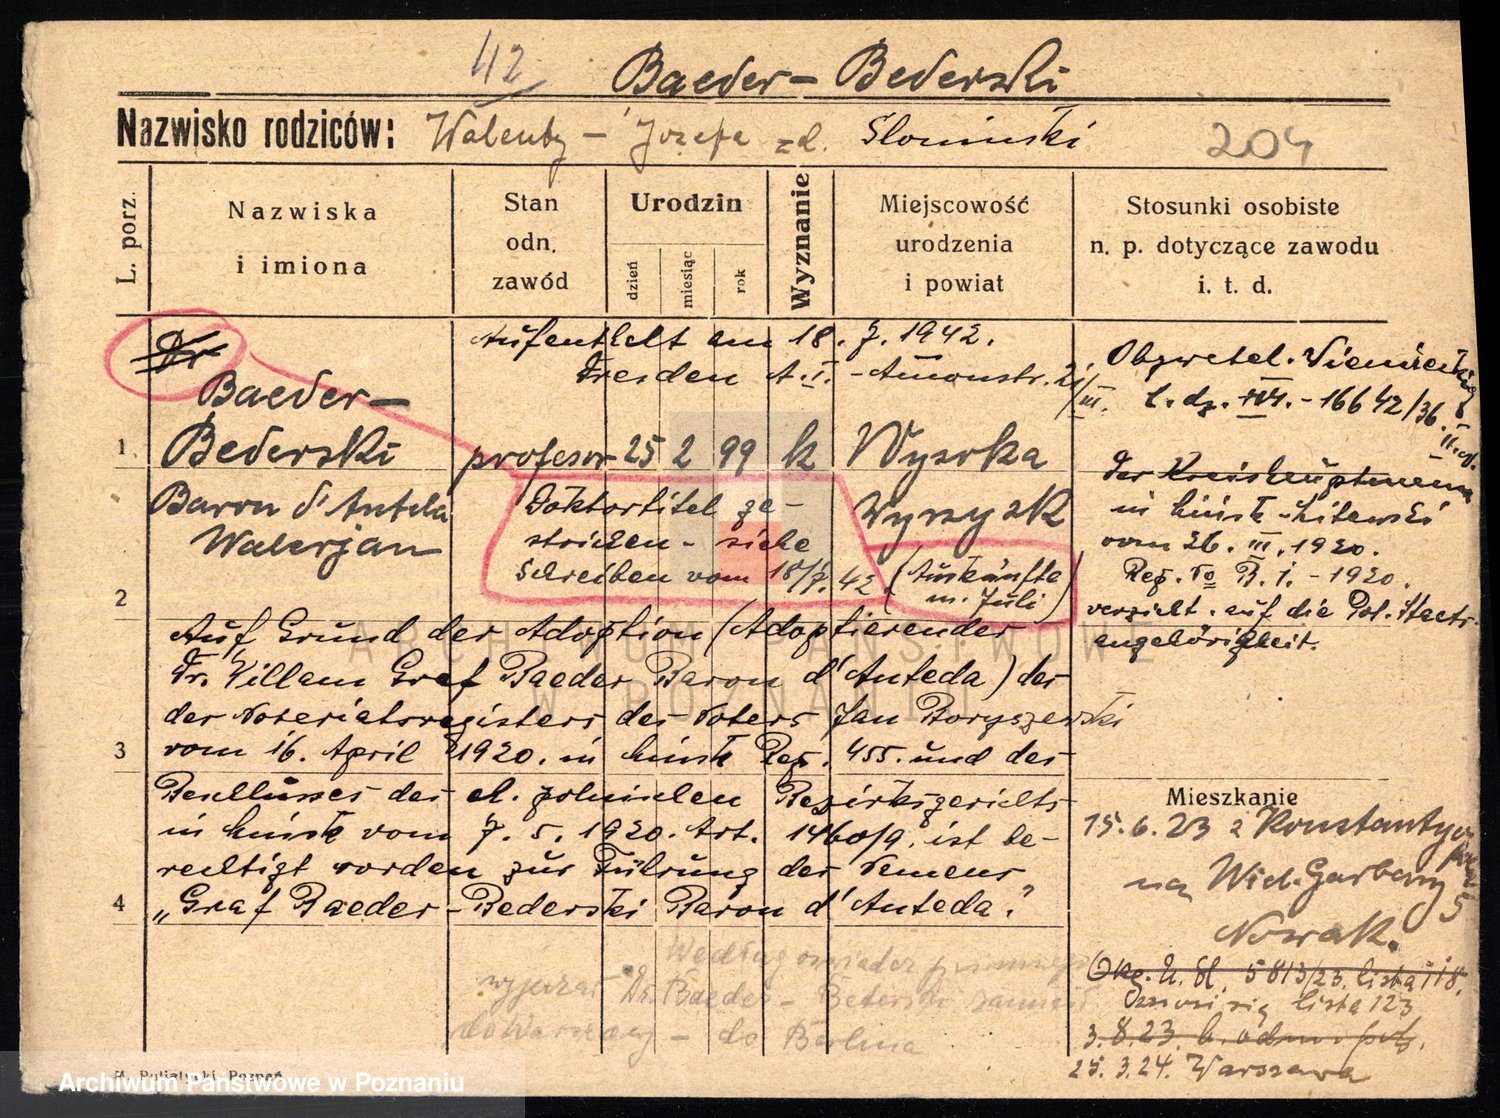 42
Baeder-Bederski
Nazwisko rodziców: Walenty - Józefa zd. Słomiński
204
L. porz.
Nazwiska
i imiona
Stan
odn.
zawód
Urodzin
dzień
miesiąc
rok
Wyznanie
Miejscowość
urodzenia
i powiat
Stosunki osobiste
n. p. dotyczące zawodu
i. t. d.
Dr
Baeder-
1 Bederski
Baron d'Anteda
Walerjan
Aufenthalt am 18. 7. 1942.
Dresden A.I.-Amonstr.
profesor 25 2 99 k Wysoka
Wyrzysk
Doktortitel ge-
strichen - siehe
Schreiben vom 18/7. 42
(Auskünfte
m. Juli)
Obywatel. Niemiecki
L. dz. - 16642/36.
Der Kreishauptmann
in Mińsk-Litewski
vom 26. III. 1920.
Reg. No B. I. - 1920.
verzicht. auf die Pol. Staats-
angehörigkeit.
2
Auf Grund der Adoption (Adoptierender
Dr. Willam Graf Baeder Baron d'Anteda) des
des Notariatsregisters des Notars Jan Boryszewski
3 vom 16. April 1920. in Mińsk Reg. 455. und des
Beschlusses des el. polnischen Bezirksgerichts
in Mińsk vom 7. 5. 1920. Art. 1460/9. ist be-
rechtigt worden zur Führung des Namens
4 „Graf Baeder-Bederski Baron d'Anteda."
Mieszkanie
15. 6. 23 z Konstantynopola
na Wiel. Garbary 5
Nowak.
5813/23. lista 118.
lista 123
3. 8. 23.
25. 3. 24. Warszawa
Według
wyjechał Dr. Baeder-Bederski zamiast
do Warszawy - do Berlina
ARCHIWUM PAŃSTWOWE
W POZNANIU
Archiwum Państwowe w Poznaniu